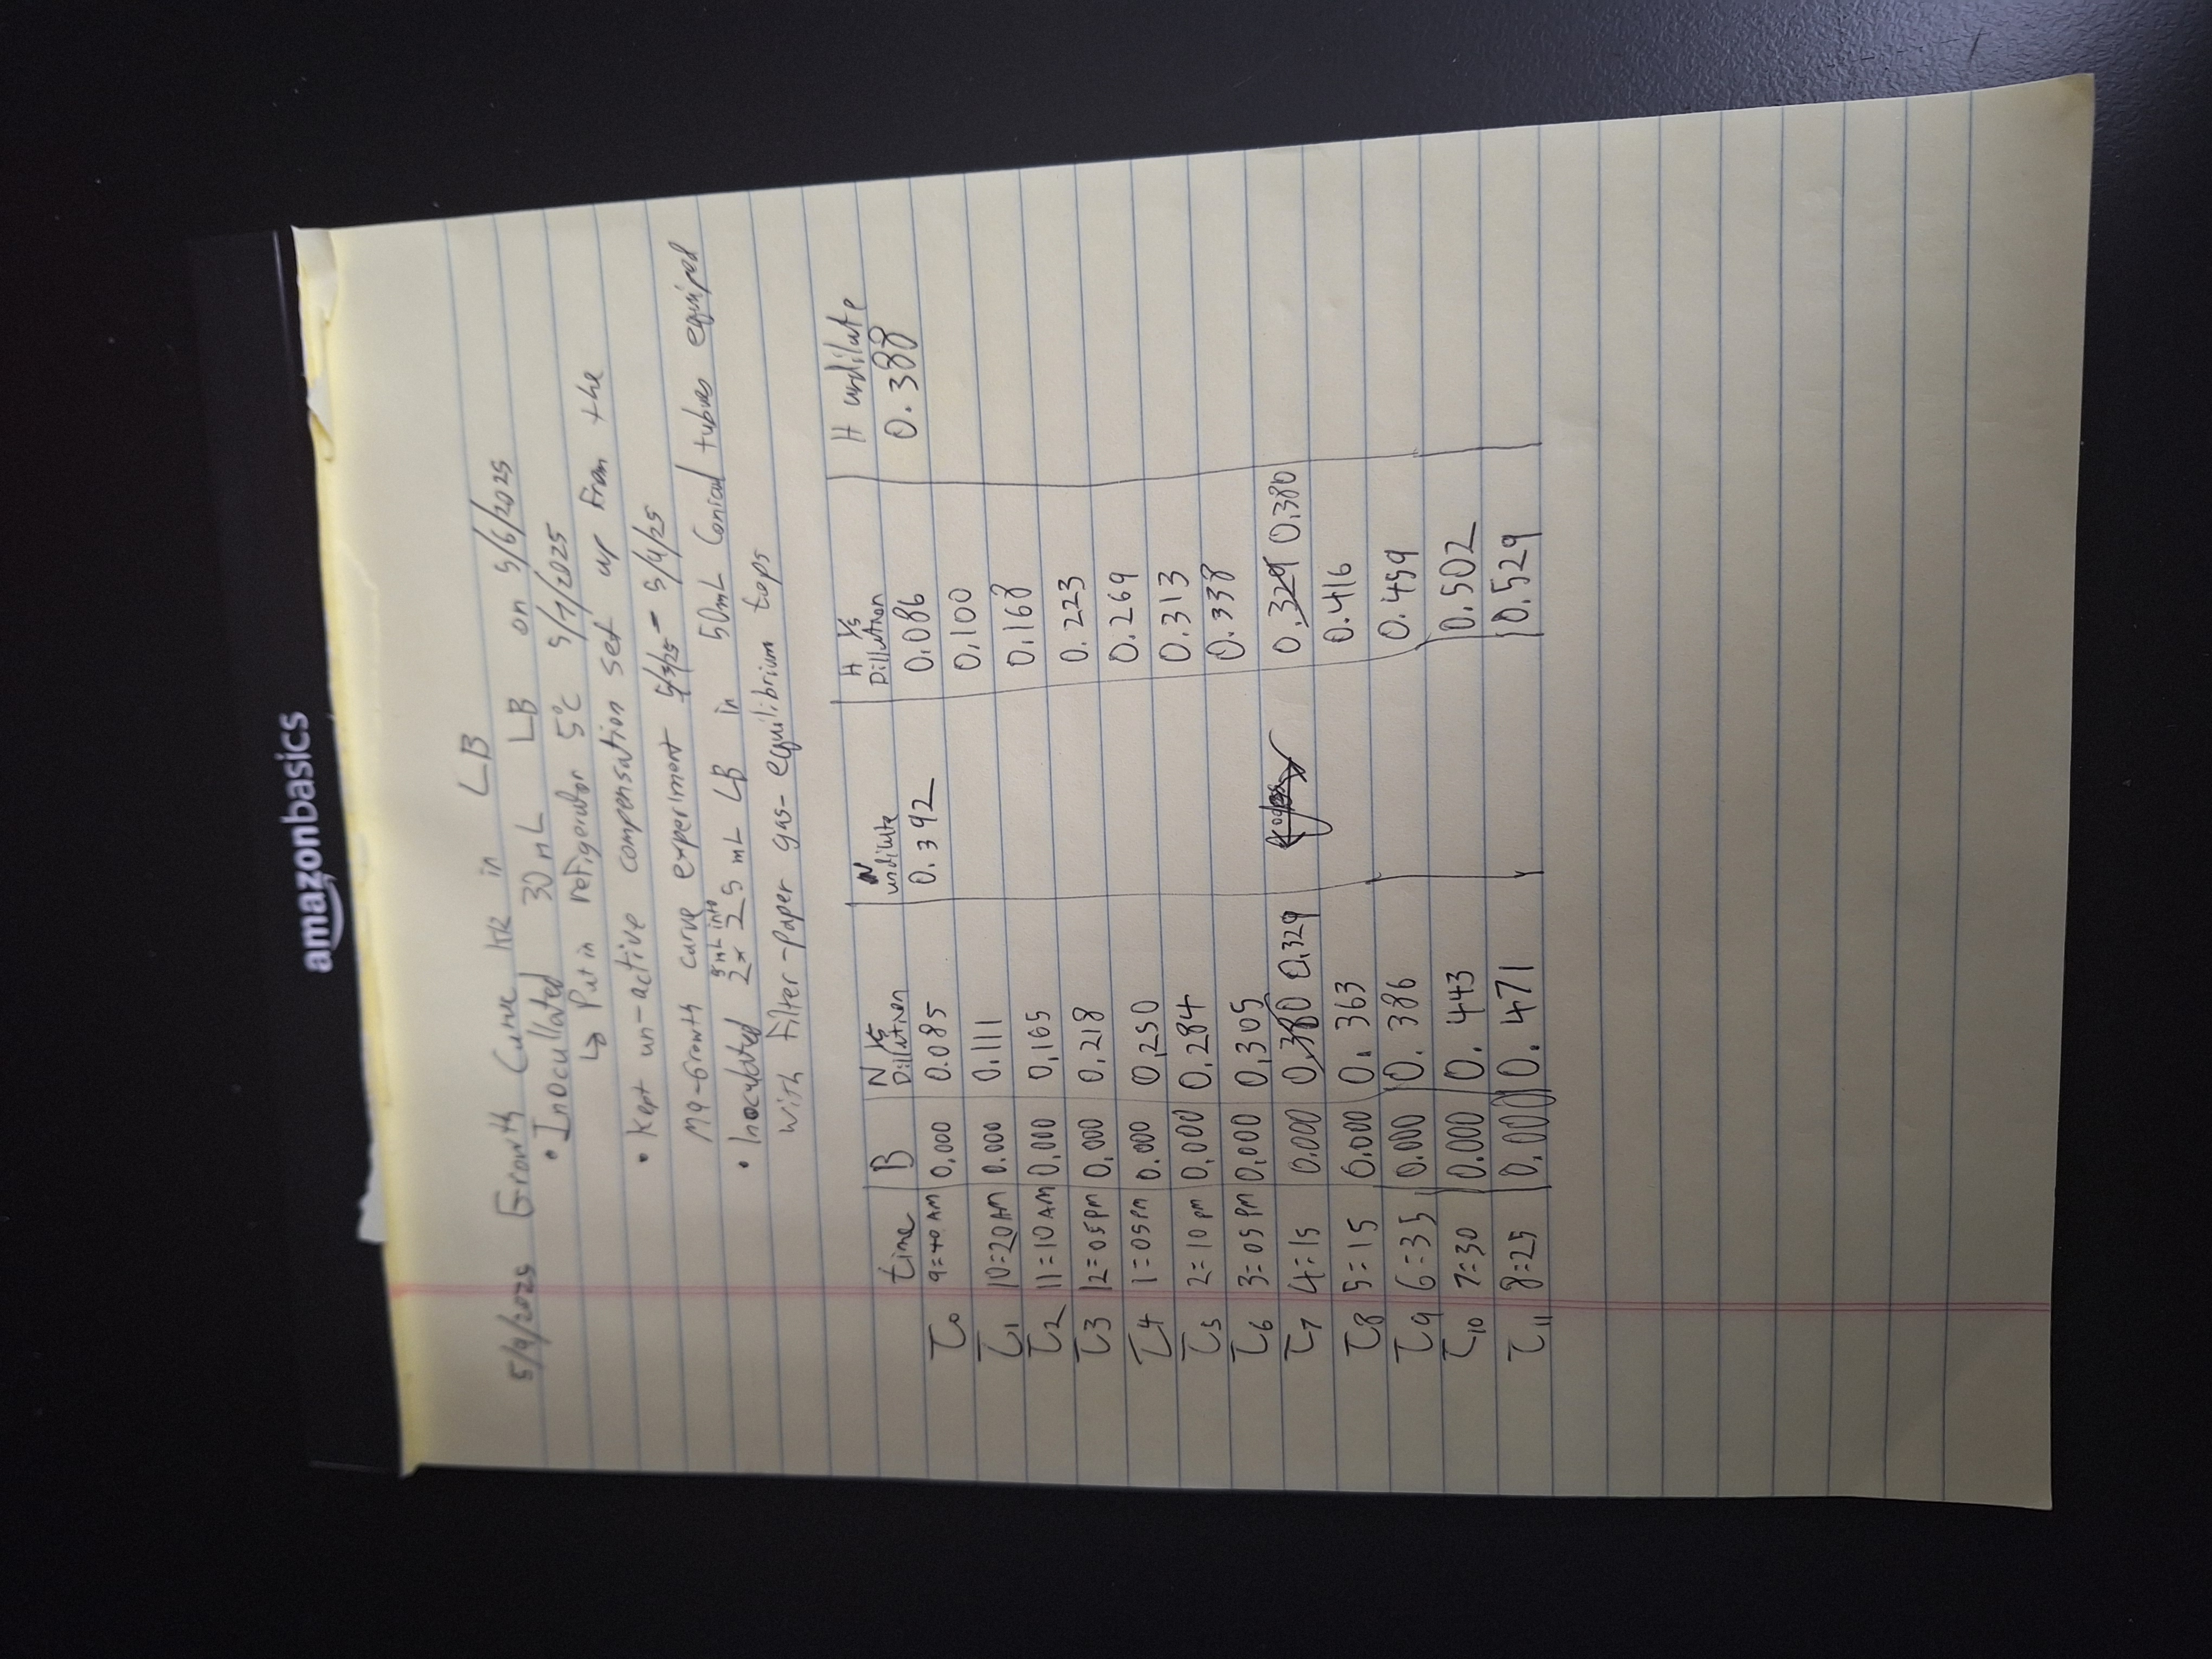 amazonbasics
5/9/2025 Growth Curve KK in LB
• Inocullated 30 mL LB on 5/6/2025
↳ Put in refigerator 5°C 5/7/2025
• Kept un-active compensation set up from the
M9-Growth curve experiment 5/3/25 - 5/4/25
5 mL into
• Inoculated 2x 25 mL LB in 50mL Conical tubues equiped
with filter-paper gas-equilibrium tops
time B N 1/5 Dillution N undilute H 1/5 Dillution H undilute
T0 9:40 AM 0.000 0.085 0.392 0.086 0.388
T1 10:20 AM 0.000 0.111 0.100
T2 11:10 AM 0.000 0.165 0.168
T3 12:05 PM 0.000 0.218 0.223
T4 1:05 PM 0.000 0.250 0.269
T5 2:10 pm 0.000 0.284 0.313
T6 3:05 PM 0.000 0.305 0.338
T7 4:15 0.000 0.380 0.329 0.329 0.380
T8 5:15 0.000 0.363 0.416
T9 6:35 0.000 0.386 0.459
T10 7:30 0.000 0.443 0.502
T11 8:25 0.000 0.471 0.529